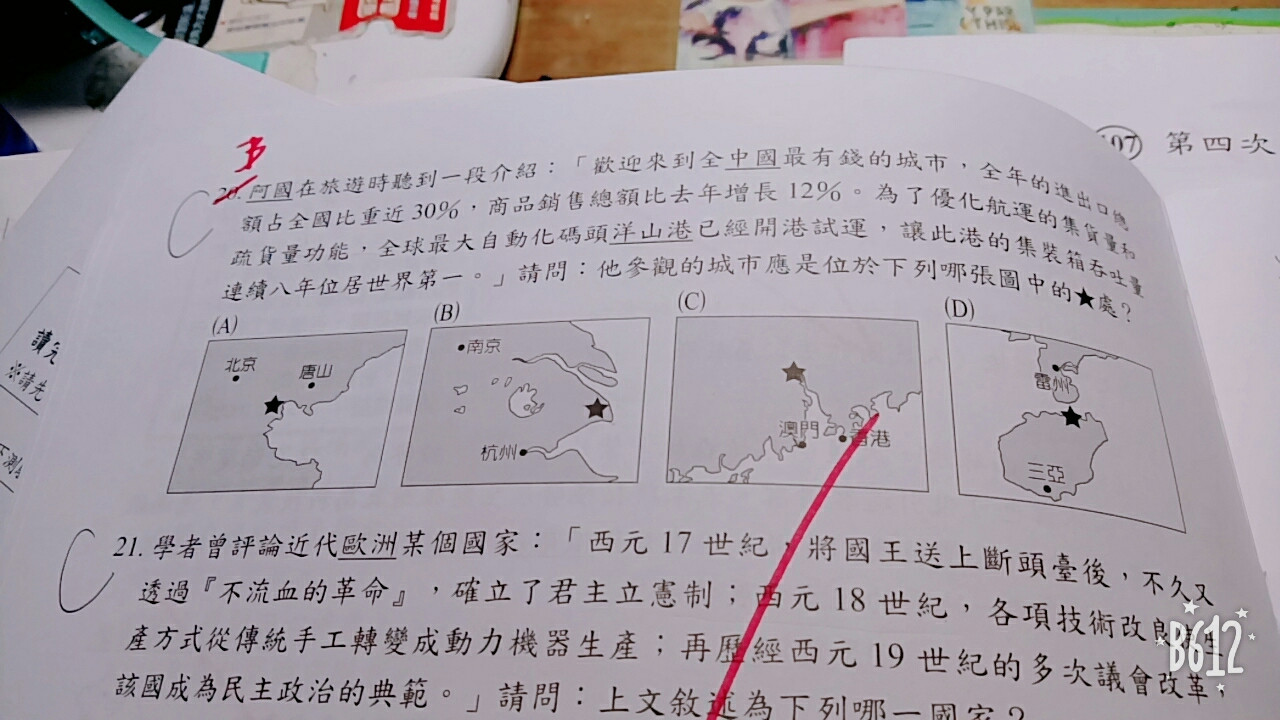 107 第四次
20. 阿國在旅遊時聽到一段介紹：「歡迎來到全中國最有錢的城市，全年的進出口總
額占全國比重近 30%，商品銷售總額比去年增長 12%。為了優化航運的集貨量和
疏貨量功能，全球最大自動化碼頭洋山港已經開港試運，讓此港的集裝箱吞吐量
連續八年位居世界第一。」請問：他參觀的城市應是位於下列哪張圖中的★處？
(A) (B) (C) (D)
北京 唐山
南京 杭州
澳門 香港
雷州 三亞
C
21. 學者曾評論近代歐洲某個國家：「西元 17 世紀，將國王送上斷頭臺後，不久又
透過『不流血的革命』，確立了君主立憲制；西元 18 世紀，各項技術改良
產方式從傳統手工轉變成動力機器生產；再歷經西元 19 世紀的多次議會改革
該國成為民主政治的典範。」請問：上文敘述為下列哪一國家？
C
讀完
※請先
B612